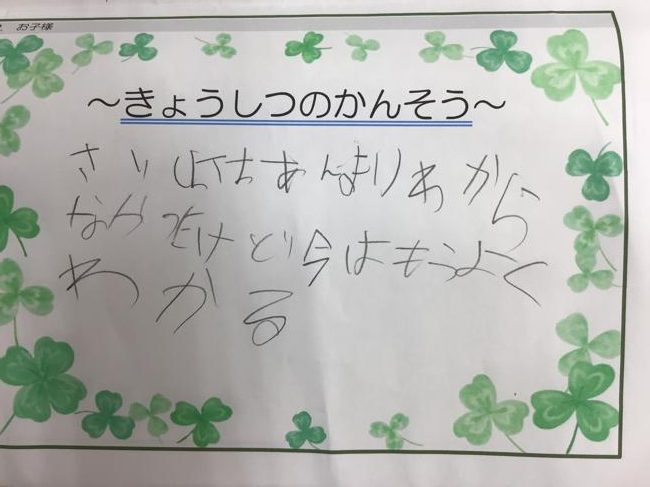 お子様
～きょうしつのかんそう～
さいしょはあんまりわから
なかったけど今はもうよく
わかる